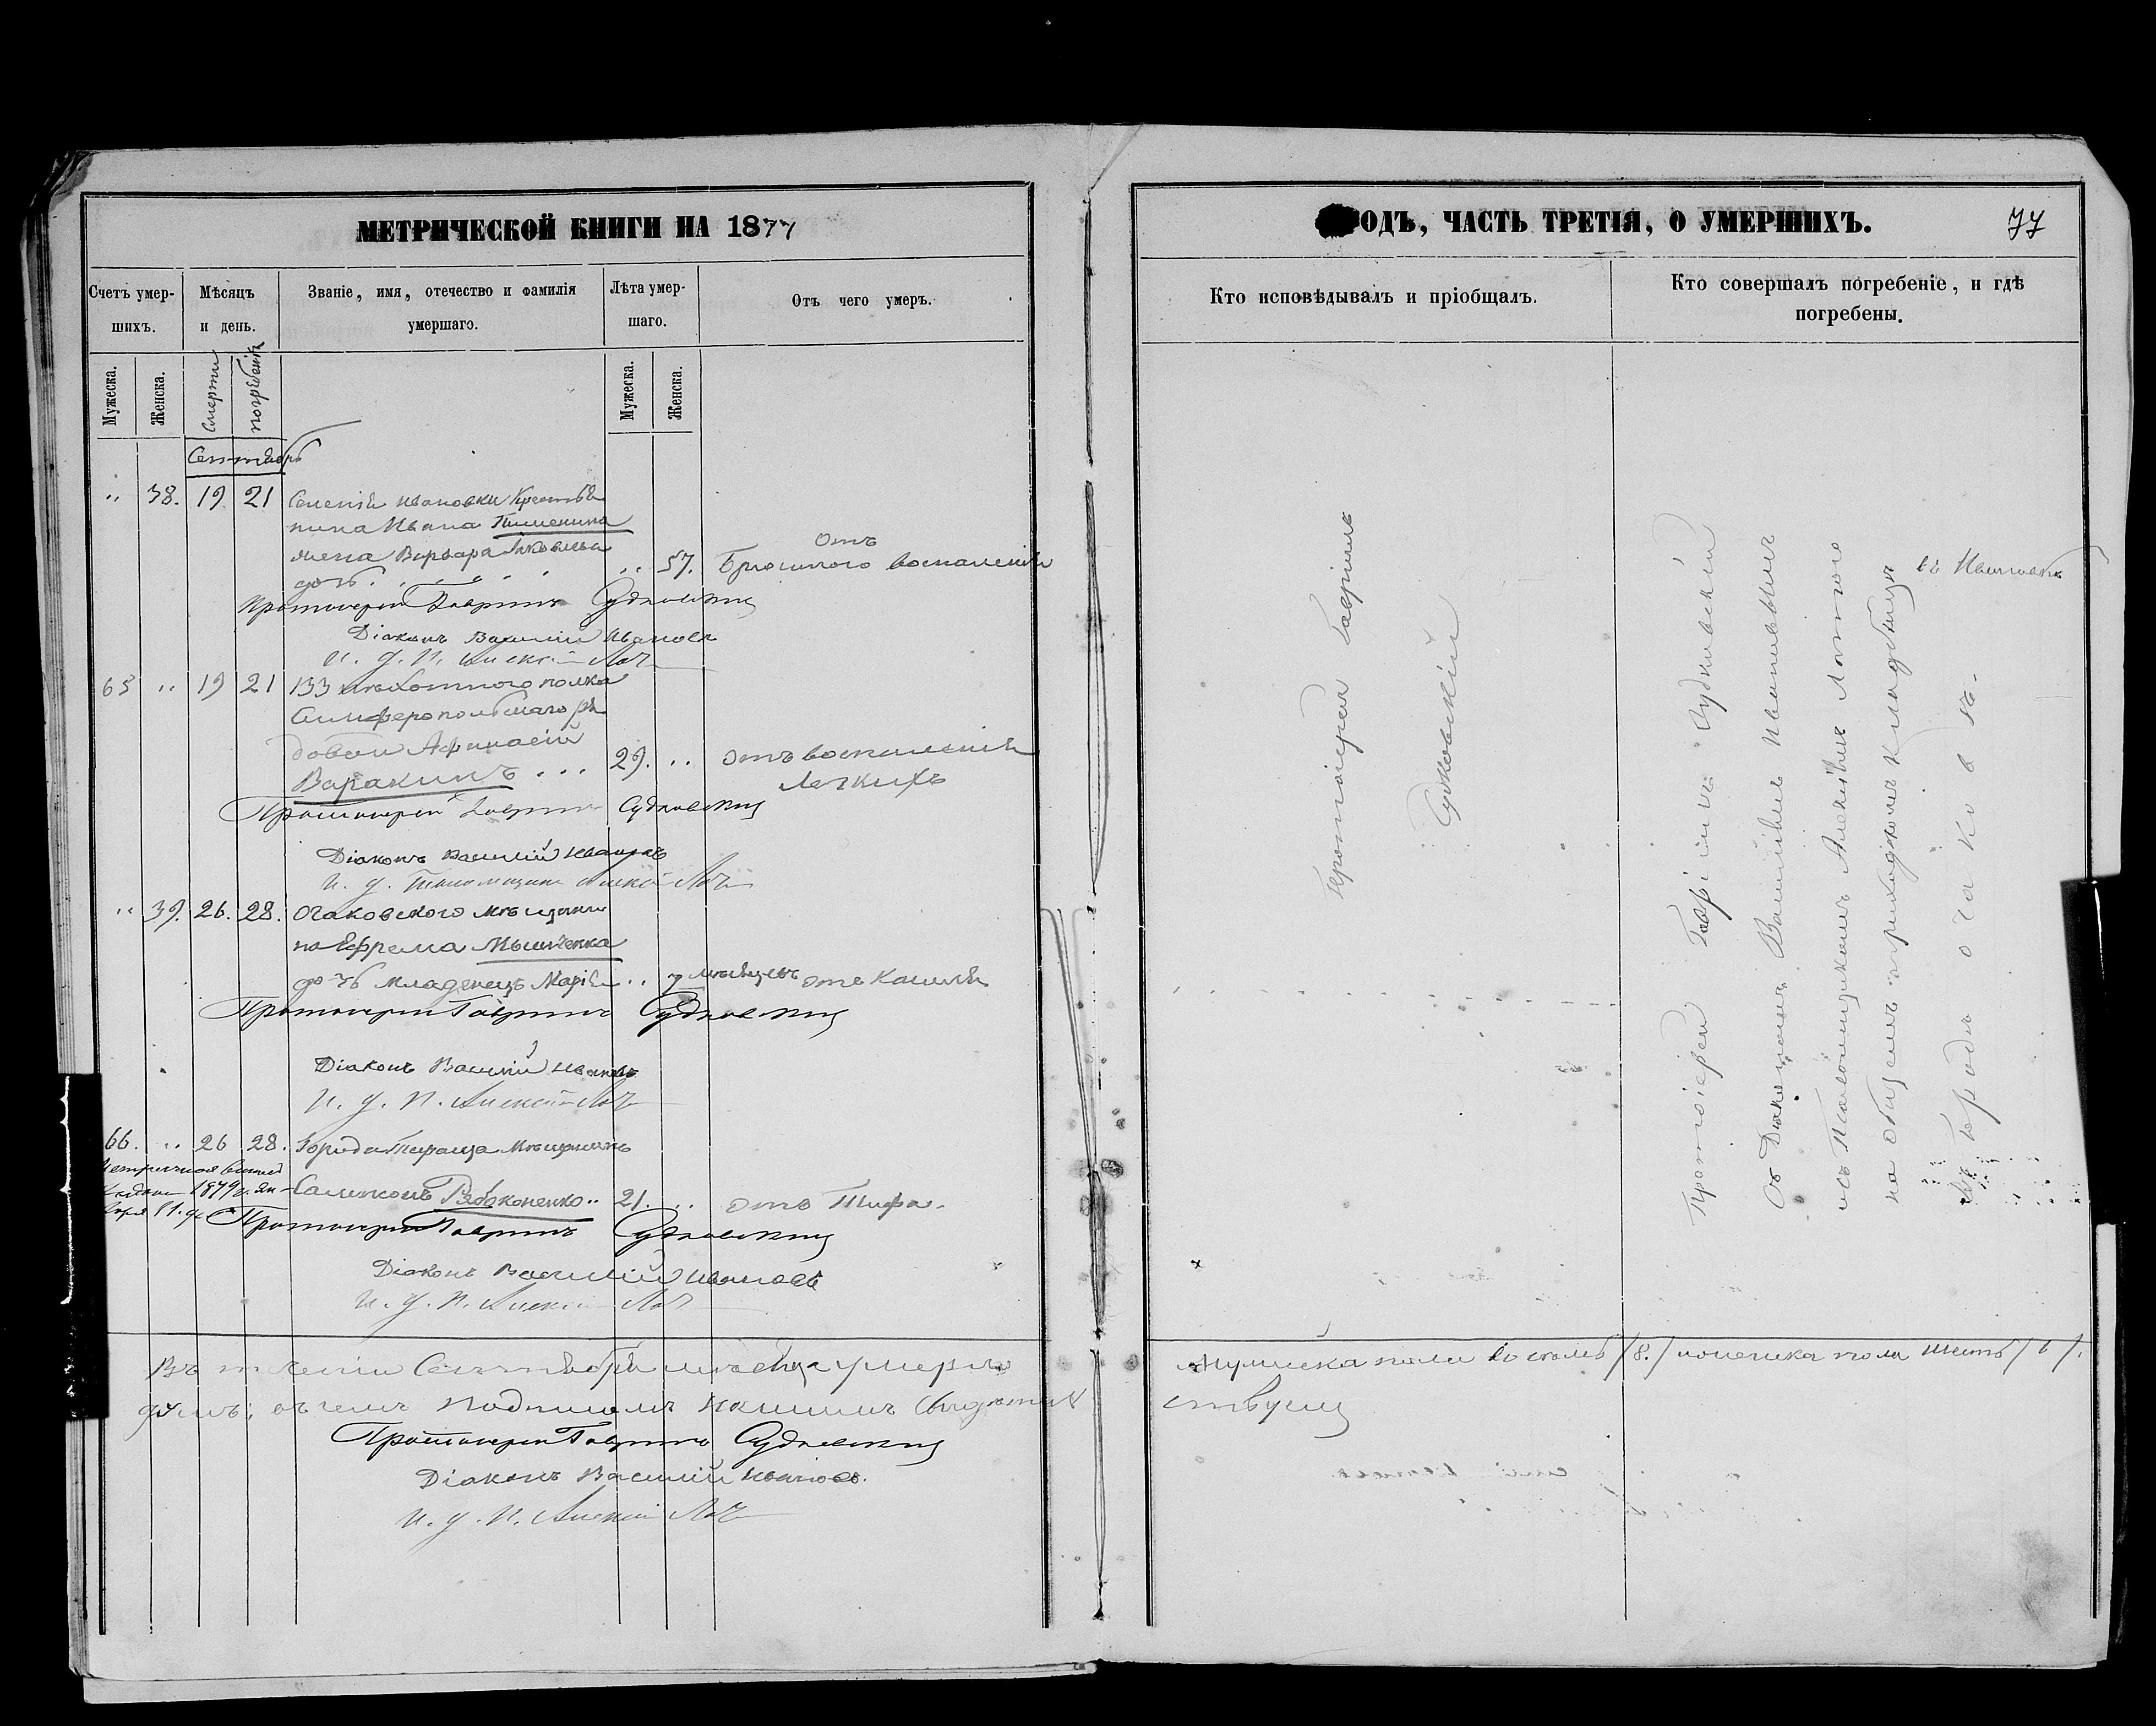 МЕТРИЧЕСКОЙ КНИГИ НА 1877
Счетъ умер-
шихъ.
Мѣсяцъ
и день.
Званіе, имя, отечество и фамилія
умершаго.
Лѣта умер-
шаго.
Отъ чего умеръ.
Мужеска.
Женска.
Смерти
погребенія
Мужеска.
Женска.
Сентябрь
" 38. 19. 21
Ивановки Крестья
нина Ивана
жена Варвара Яковлева
дочь .. 57. Отъ
Брюшного воспаленія
Протоіерей Гавріилъ Судковскій
Діаконъ Василій Ивановъ
И. д. П. Алексій
65 " 19 21 133 пѣхотного полка
Симферопольскаго ря
довой Афанасій
Варакинъ ... 29. .. отъ воспаленія
Легкихъ
Протоіерей Гавріилъ Судковскій
Діаконъ Василій Ивановъ
И. д. Псаломщика Алексій
" 39. 26. 28. Очаковского мѣщани
на Ефрема
дочь младенецъ Марія .. 7 мѣсяцевъ отъ Кашля
Протоіерей Гавріилъ Судковскій
Діаконъ Василій Ивановъ
И. д. П. Алексій
66. .. 26 28. Города Мѣщанинъ
1879 г. Ян-
Рябоконенко .. 21. .. отъ Тифа.
Протоіерей Гавріилъ Судковскій
Діаконъ Василій Ивановъ
И. д. П. Алексій
Въ теченіи Сентября мѣсяца умерло
въ чемъ подписомъ нашимъ свидѣтель
Протоіерей Гавріилъ Судковскій
Діаконъ Василій Ивановъ.
И. д. П. Алексій
ОДЪ, ЧАСТЬ ТРЕТІЯ, О УМЕРШИХЪ.
77
Кто исповѣдывалъ и пріобщалъ.
Кто совершалъ погребеніе, и гдѣ
погребены.
Протоіерей Гавріилъ
Судковскій
Протоіерей Гавріилъ Судковскій
съ Діакономъ Василіемъ Ивановымъ
Псаломщикомъ Алексіемъ
на общемъ приходскомъ кладбищѣ
въ Ивановкѣ
города Очакова.
мужеска пола восемь /8./ женска пола шесть /6/.
ствуемъ